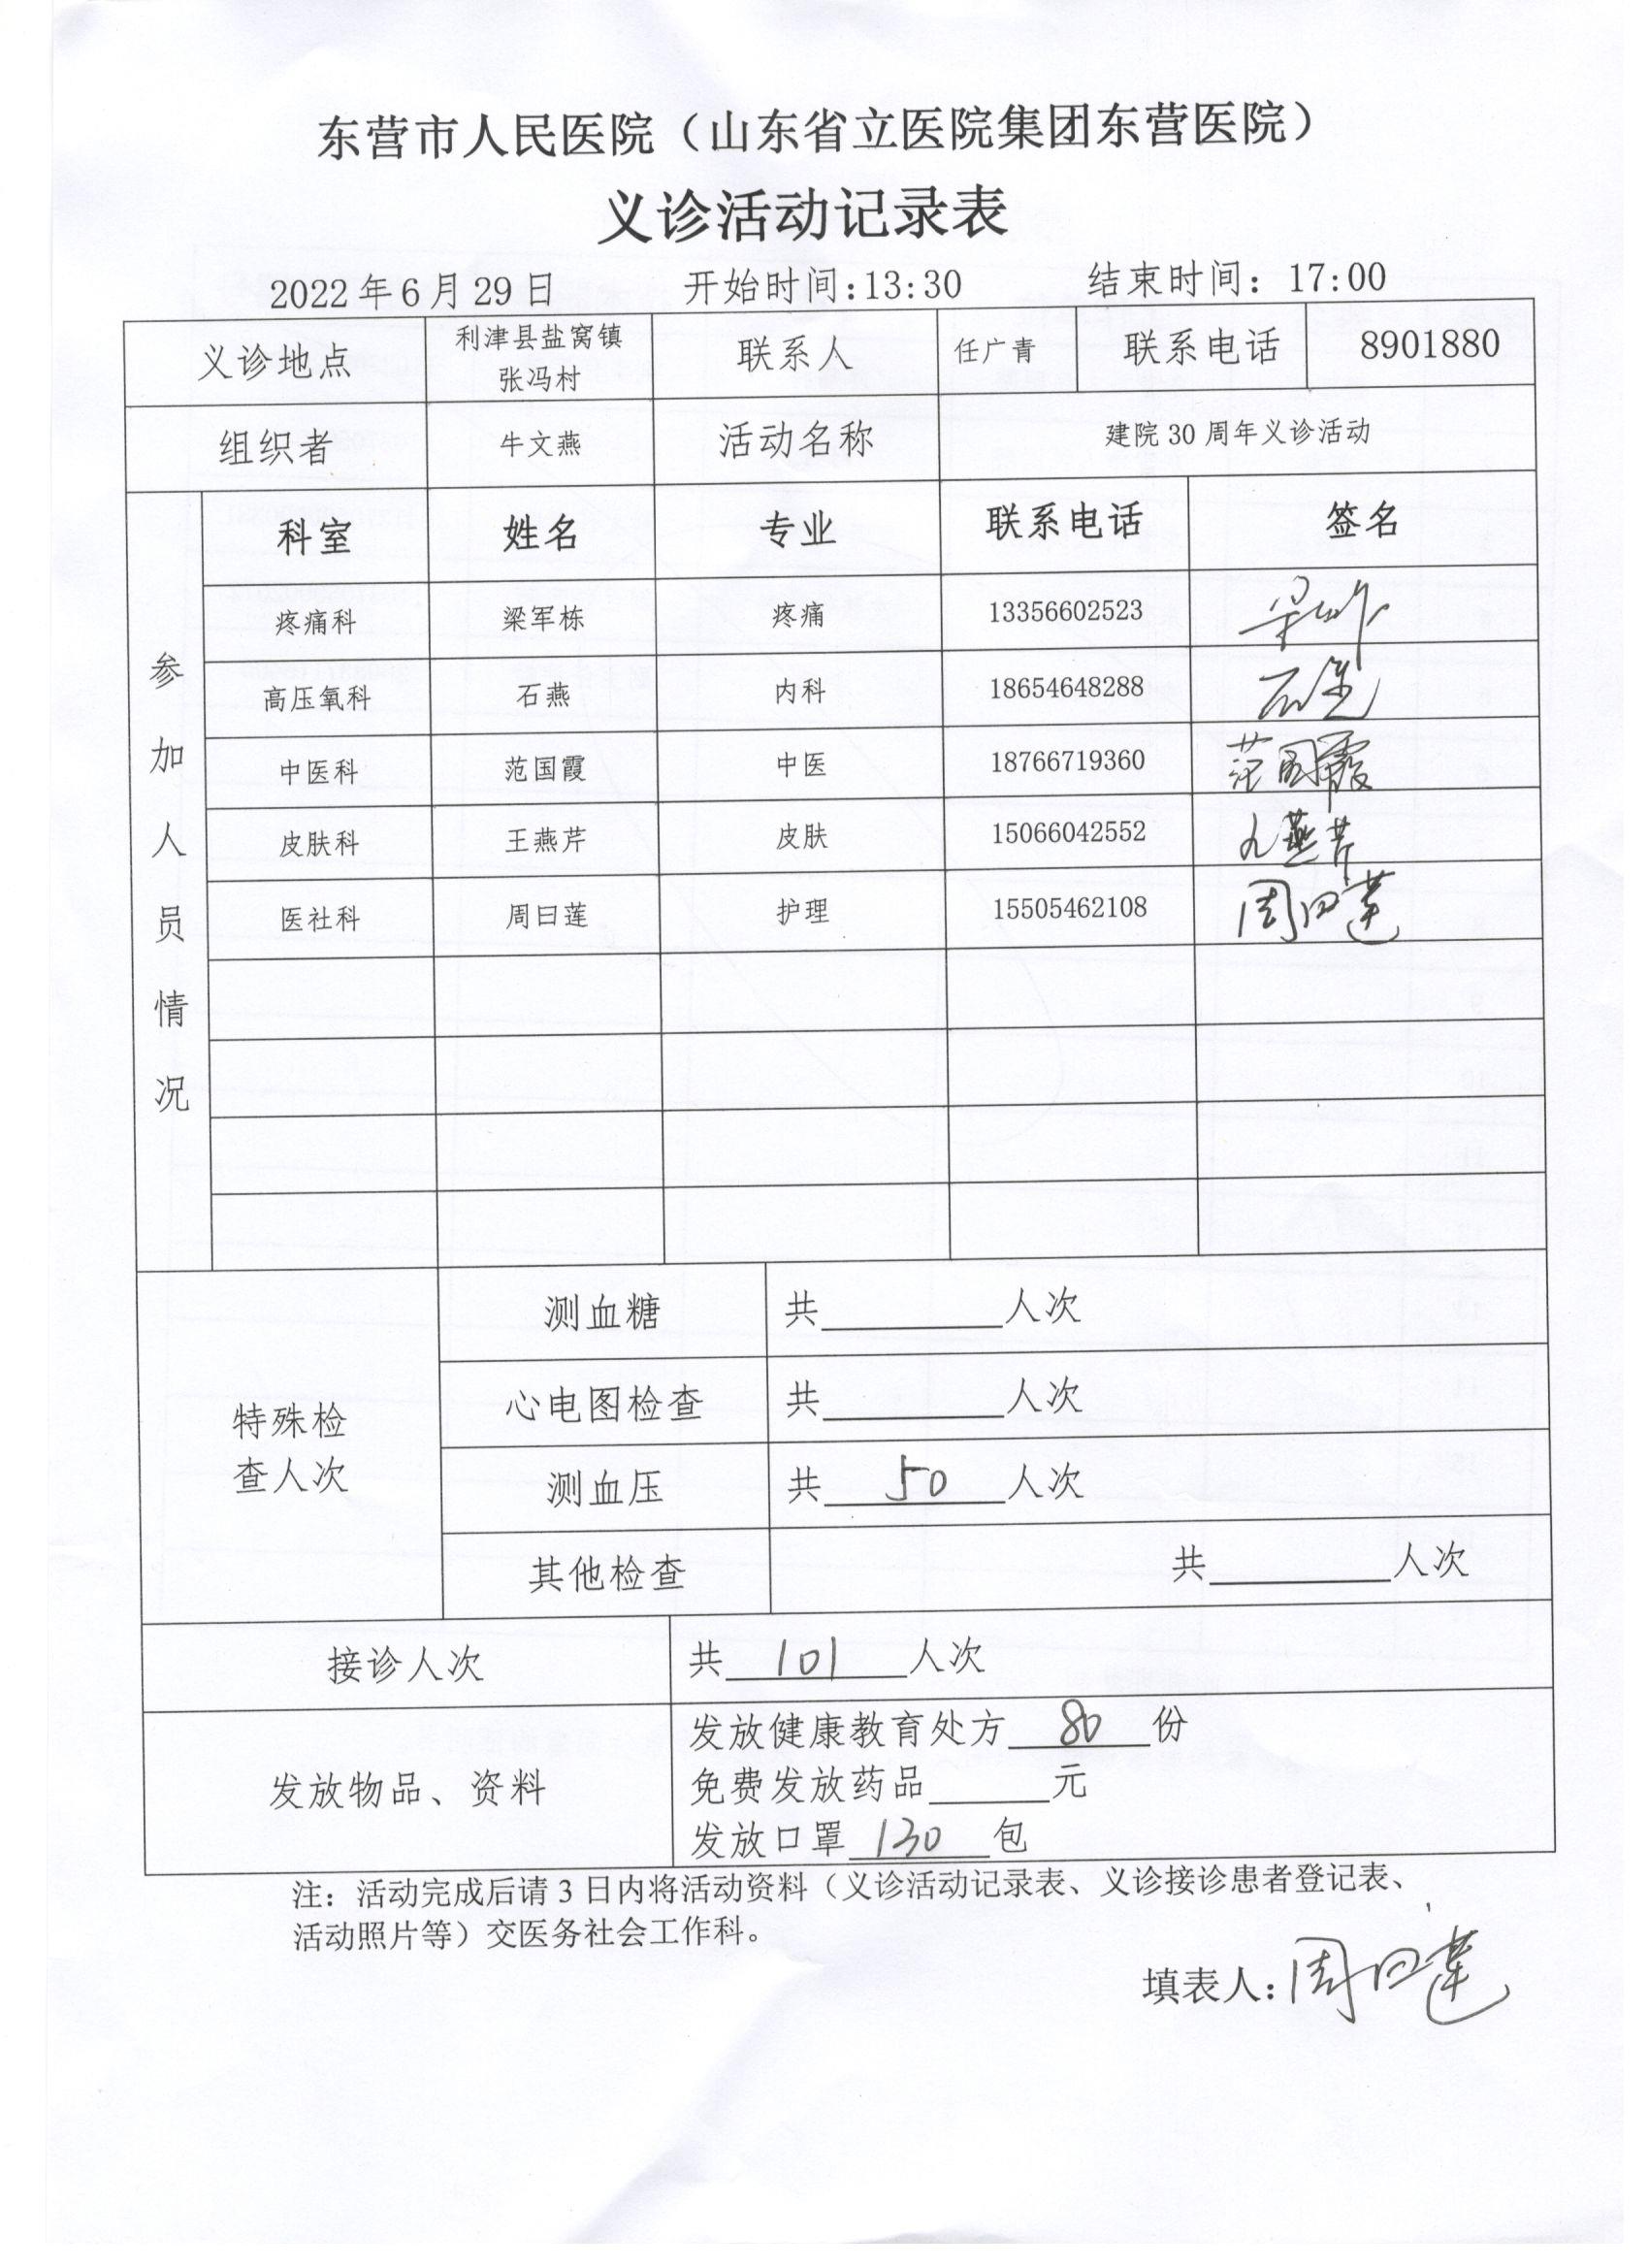 东营市人民医院（山东省立医院集团东营医院）
义诊活动记录表
2022年6月29日 开始时间:13:30 结束时间：17:00
义诊地点 利津县盐窝镇张冯村 联系人 任广青 联系电话 8901880
组织者 牛文燕 活动名称 建院30周年义诊活动
参加人员情况
科室 姓名 专业 联系电话 签名
疼痛科 梁军栋 疼痛 13356602523
高压氧科 石燕 内科 18654648288 石燕
中医科 范国霞 中医 18766719360 范国霞
皮肤科 王燕芹 皮肤 15066042552 王燕芹
医社科 周曰莲 护理 15505462108 周曰莲
特殊检查人次
测血糖 共 人次
心电图检查 共 人次
测血压 共50人次
其他检查 共 人次
接诊人次 共101人次
发放物品、资料
发放健康教育处方80份
免费发放药品 元
发放口罩130包
注：活动完成后请3日内将活动资料（义诊活动记录表、义诊接诊患者登记表、
活动照片等）交医务社会工作科。
填表人:周曰莲